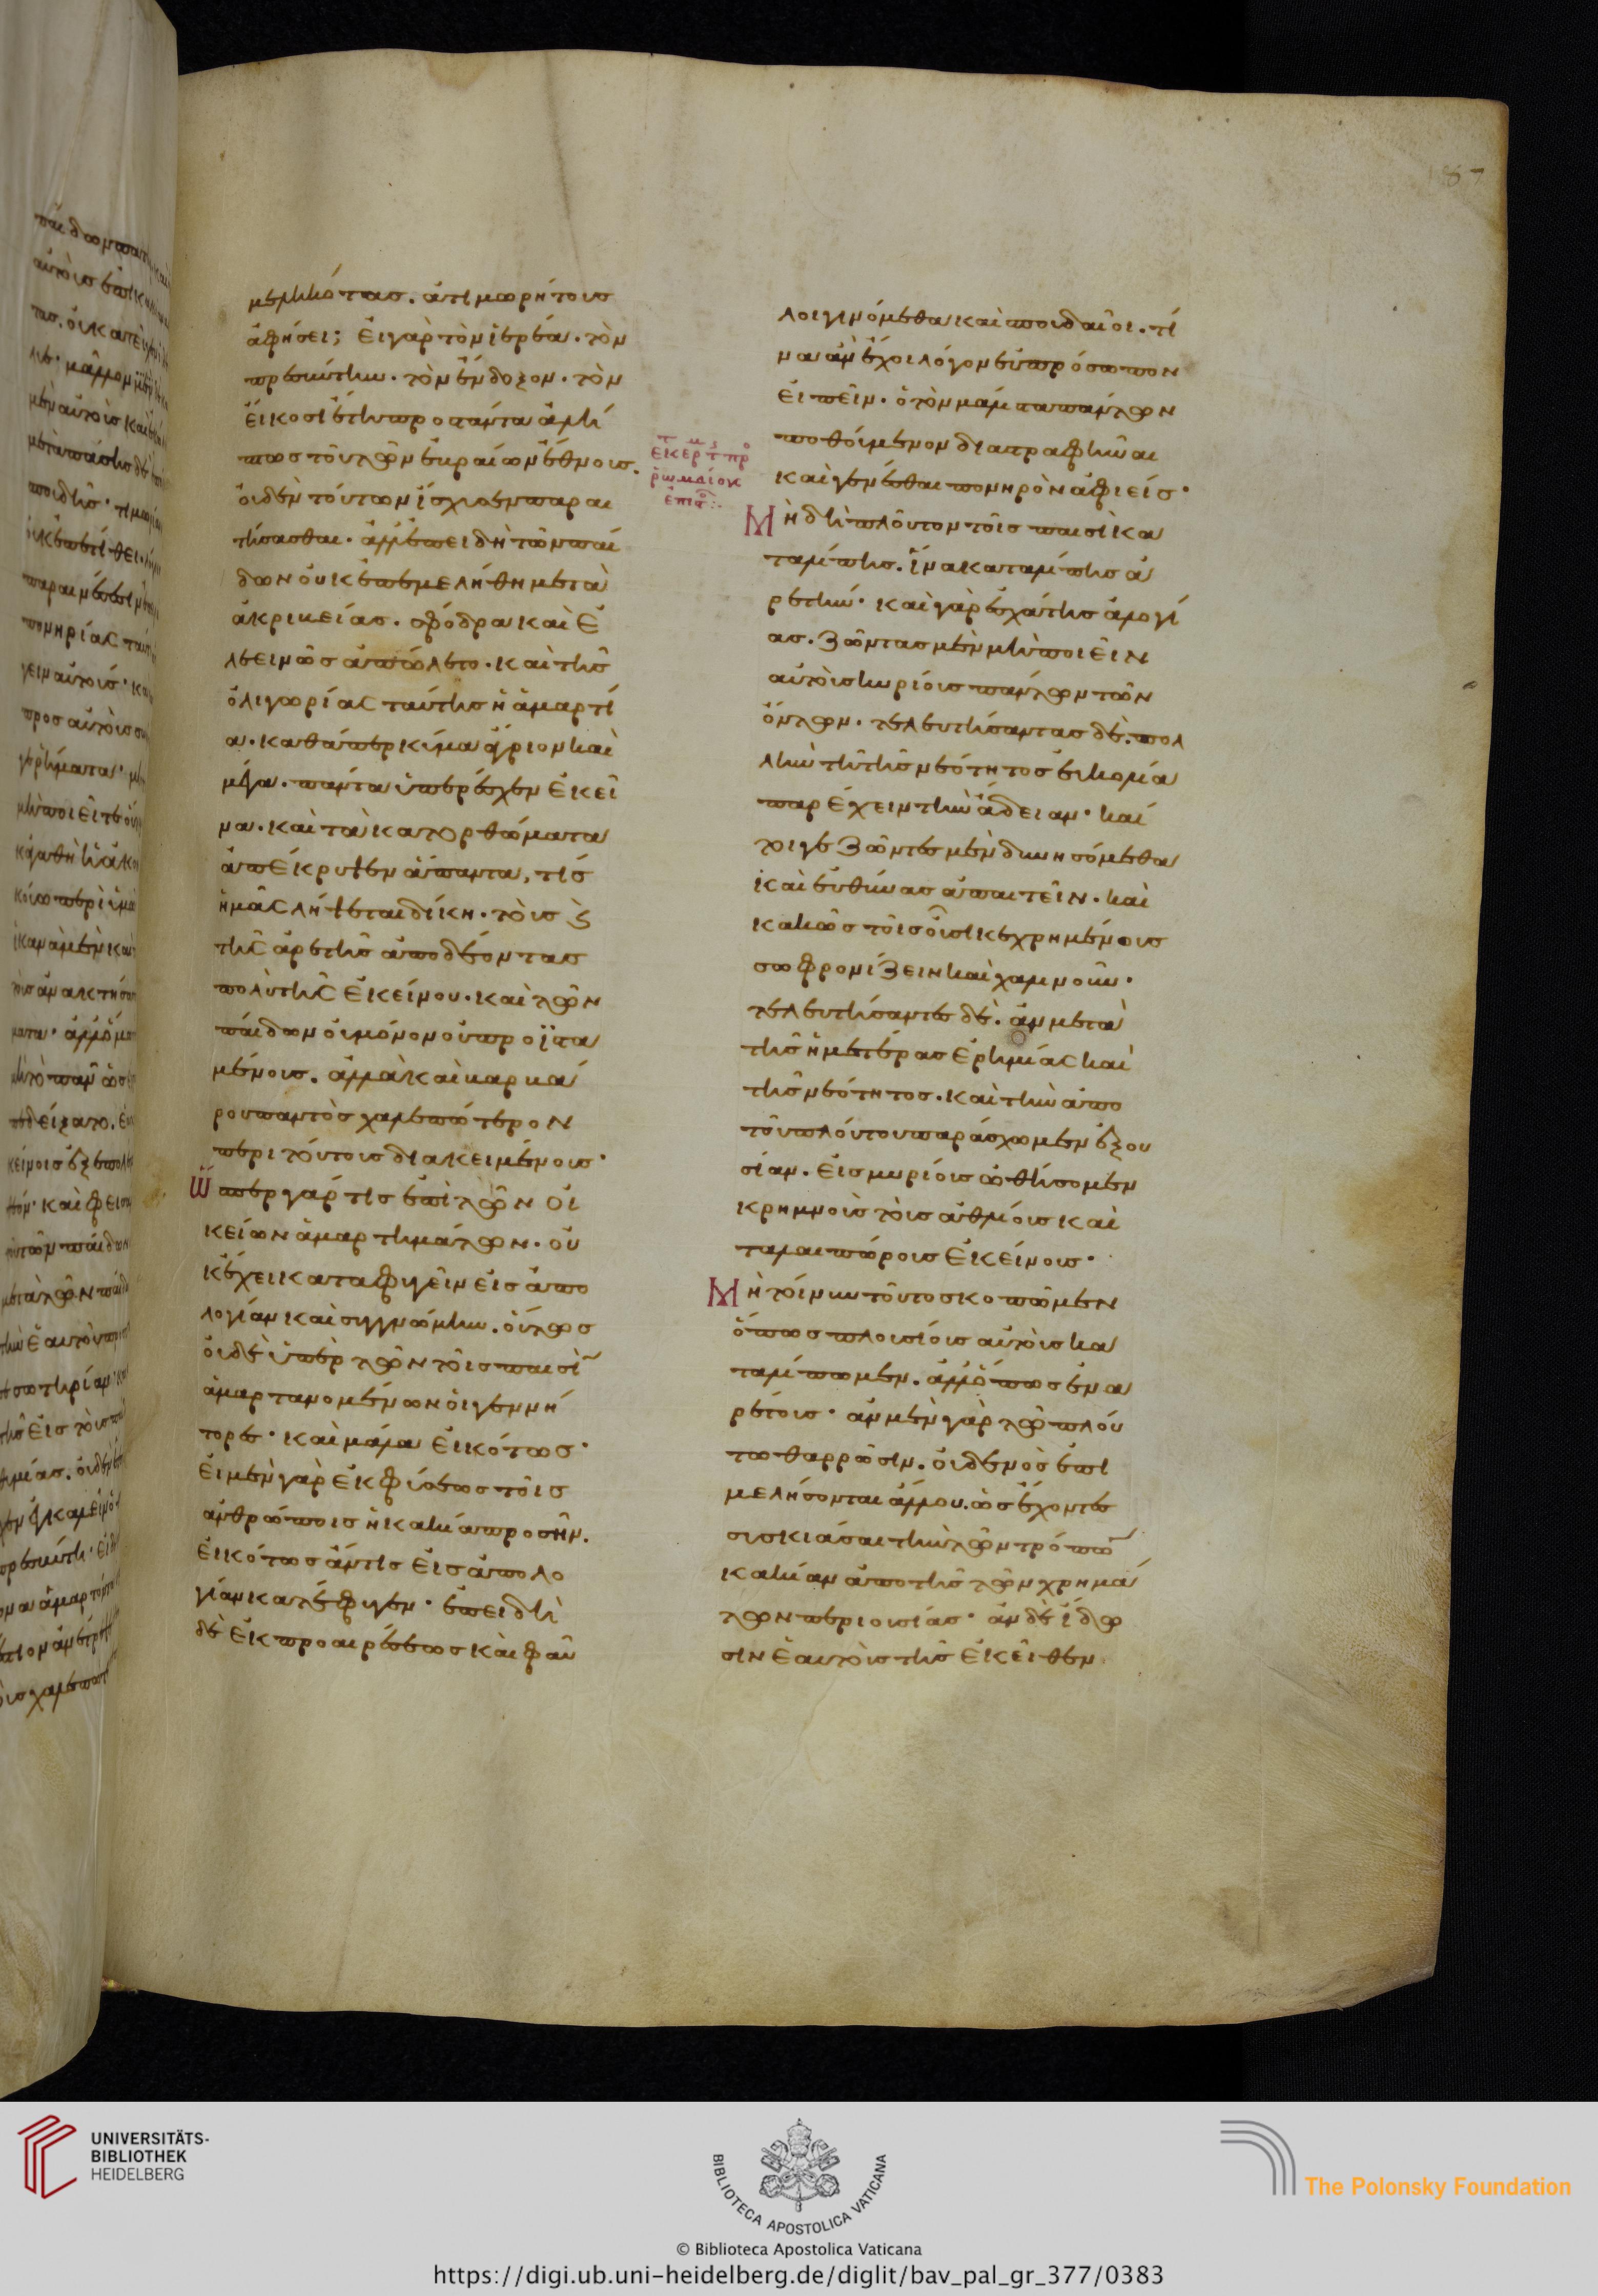 μεληκότας. ἀτιμωρήτους
ἀφήσει; εἰ γὰρ τὸν ἱερέα. τὸν
πρεσβύτην. τὸν ἔνδοξον. τὸν
εἴκοσι ἔτη προστάντα ἀλή
πτως τοῦ τῶν ἑβραίων ἔθνους.
οὐδὲν τούτων ἴσχυσεν παραι
τήσασθαι. ἀλλ' ἐπειδὴ τῶν παί
δων οὐκ ἐπεμελήθη μετὰ
ἀκριβείας. σφόδρα καὶ ἐ
λεεινῶς ἀπώλετο. καὶ τῆς
ὀλιγωρίας ταύτης ἡ ἁμαρτί
α. καθάπερ κῦμα ἄγριον καὶ
μέγα. πάντα ὑπερέσχεν ἐκεῖ
να. καὶ τὰ κατορθώματα
ἀπέκρυψεν ἅπαντα, τίς
ἡμᾶς λήψεται δίκη. τοὺς ϛ
τῆς ἀρετῆς ἀποδέοντας
πολὺ τῆς ἐκείνου. καὶ τῶν
παίδων οὐ μόνον οὐ προϊστα
μένους. ἀλλὰ καὶ βαρβά
ρου παντὸς χαλεπώτερον
περὶ τούτους διακειμένους.
Ὥσπερ γάρ τις ἐπὶ τῶν οἰ
κείων ἁμαρτημάτων. οὐ
κ ἔχει καταφυγεῖν εἰς ἀπο
λογίαν καὶ συγγνώμην. οὕτως
οὐδὲ ὑπὲρ τῶν τοῖς παισὶ
ἁμαρτανομένων οἱ γεννή
τορες. καὶ μάλα εἰκότως.
εἰ μὲν γὰρ ἐκ φύσεως τοῖς
ἀνθρώποις ἡ κακία προσῆν.
εἰκότως ἄν τις εἰς ἀπολο
γίαν κατέφυγεν. ἐπειδὴ
δὲ ἐκ προαιρέσεως καὶ φαῦ
λοι γινόμεθα καὶ σπουδαῖοι. τί
να ἂν ἔχοι λόγον εὐπρόσωπον
εἰπεῖν. ὁ τὸν μάλιστα πάντων
ποθούμενον διαστραφῆναι
καὶ γενέσθαι πονηρὸν ἀφιείς.
Μὴ δὴ πλοῦτον τοῖς παισὶ κα
ταλίπῃς. ἵνα καταλίπῃς ἀ
ρετήν. καὶ γὰρ ἐσχάτης ἀλογί
ας. ζῶντας μὲν μὴ ποιεῖν
αὐτοὺς κυρίους πάντων τῶν
ὄντων. τελευτήσαντας δὲ. πολ
λὴν τῇ τῆς νεότητος εὐκολίᾳ
παρέχειν τὴν ἄδειαν. καί
τοιγε ζῶντες μὲν δυνησόμεθα
καὶ εὐθύνας ἀπαιτεῖν. καὶ
κακῶς τοῖς οὖσι κεχρημένους
σωφρονίζειν καὶ χαλινοῦν.
τελευτήσαντες δὲ. ἂν μετὰ
τῆς ἡμετέρας ἐρημίας καὶ
τῆς νεότητος. καὶ τὴν ἀπὸ
τοῦ πλούτου παράσχωμεν ἐξου
σίαν. εἰς μυρίους ὠθήσομεν
κρημνοὺς τοὺς ἀθλίους καὶ
ταλαιπώρους ἐκείνους.
Μὴ τοίνυν τοῦτο σκοπῶμεν
ὅπως πλουσίους αὐτοὺς κα
ταλίπωμεν. ἀλλ' ὅπως ἐνα
ρέτους. ἂν μὲν γὰρ τῷ πλού
τῳ θαρρῶσιν. οὐδενὸς ἐπι
μελήσονται ἄλλου. ὡς ἔχοντες
συσκιάσαι τὴν τῶν τρόπω
κακίαν ἀπὸ τῆς τῶν χρημά
των περιουσίας. ἂν δὲ ἴδω
σιν ἑαυτοὺς τῆς ἐκεῖθεν
UNIVERSITÄTS-
BIBLIOTHEK
HEIDELBERG
BIBLIOTECA APOSTOLICA VATICANA
The Polonsky Foundation
© Biblioteca Apostolica Vaticana
https://digi.ub.uni-heidelberg.de/diglit/bav_pal_gr_377/0383